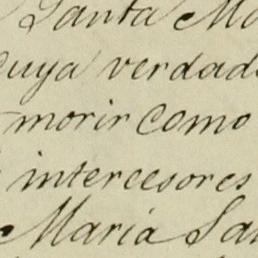 Santa Ma
cuya verdad
morir como
intercesores
Maria San